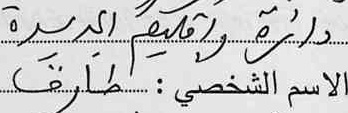 دائرة وإقليم الجديدة
الاسم الشخصي : طارق